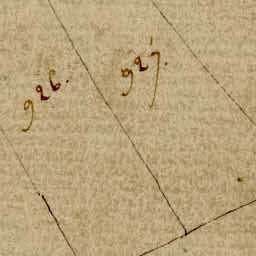 926.
927.